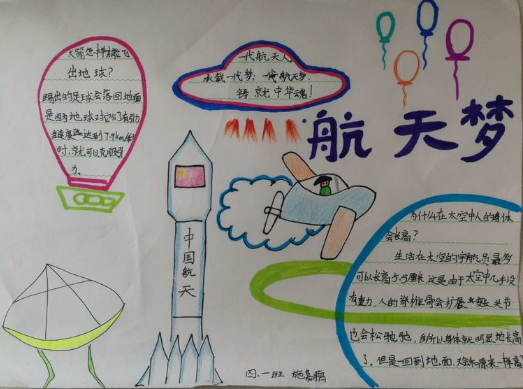 航天梦
一代航天人
承载一代梦，一代航天梦，
铸就中华魂！
火箭怎样才能飞
出地球？
踢出的足球会落回地面
是因为地球对它们有引力
当速度达到7.9km/s
时，就可以克服引
力。
中国航天
为什么在太空中人的身体
会长高？
生活在太空的宇航员最多
可以长高5.5厘米，这是由于太空中几乎没
有重力，人的脊椎骨会扩展，关节
也会松弛，所以身体就明显地长高
了。但是一回到地面，又和原来一样高
四.一班